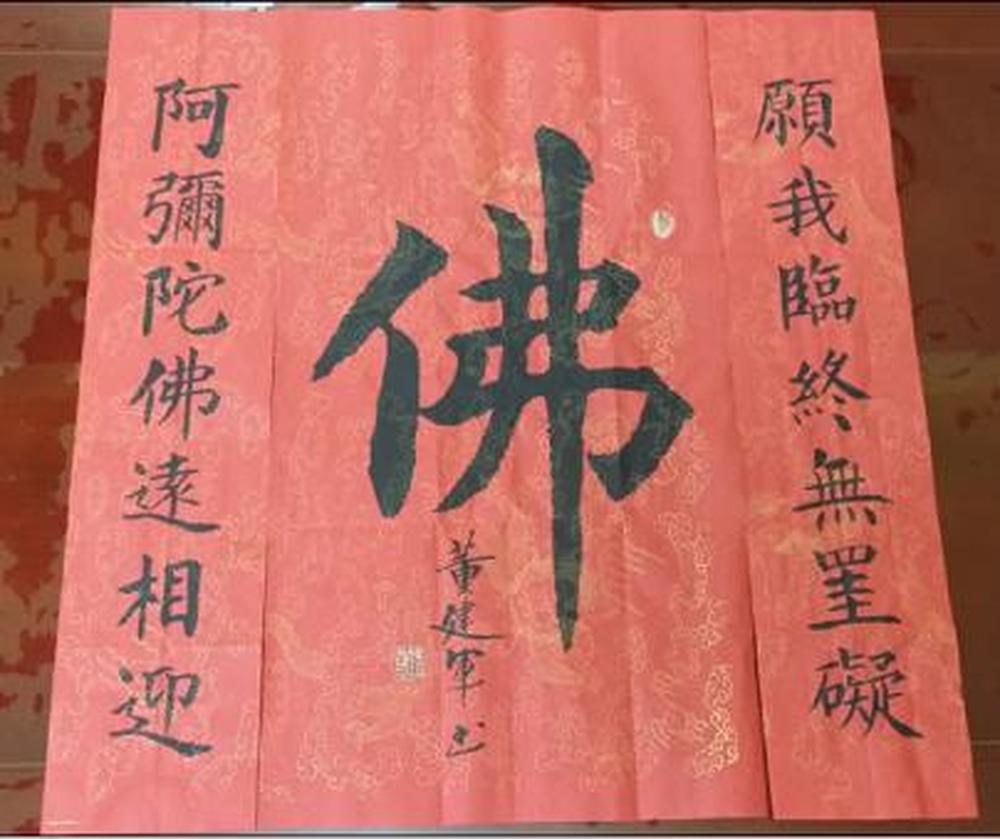 願我臨終無罣礙
佛
董建軍书
阿彌陀佛遠相迎